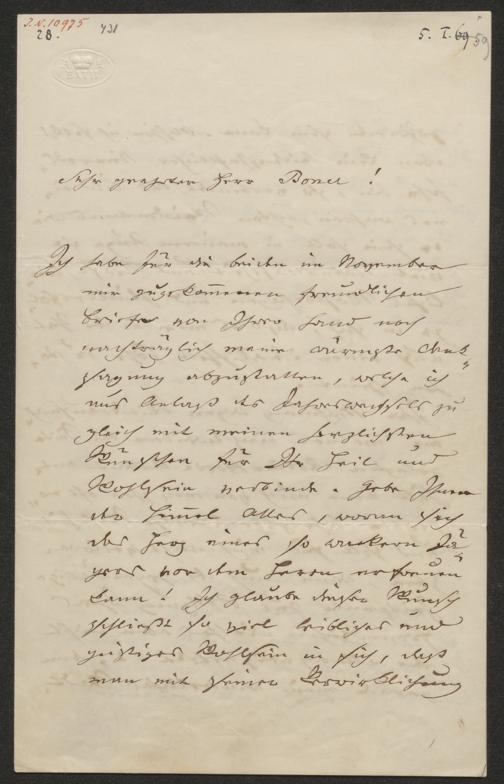 J.N. 10975
28.
431
5. I. 69
59
BATH
Sehr geehrter Herr Boner!
Ich habe für die beiden im November
mir zugekommenen freundlichen
Briefe von Ihrer Hand noch
nachträglich meine wärmste Dank-
sagung abzustatten, welche ich
aus Anlaß des Jahreswechsels zu
gleich mit meinen herzlichsten
Wünschen für Ihr Heil und
Wohlsein verbinde. Gebe Ihnen
der Himmel Alles, woran sich
das Herz eines so wackern Jä-
gers vor dem Herrn erfreuen
kann! Ich glaube dieser Wunsch
schließt so viel leibliches und
geistiges Wohlsein in sich, daß
man mit seiner Verwirklichung